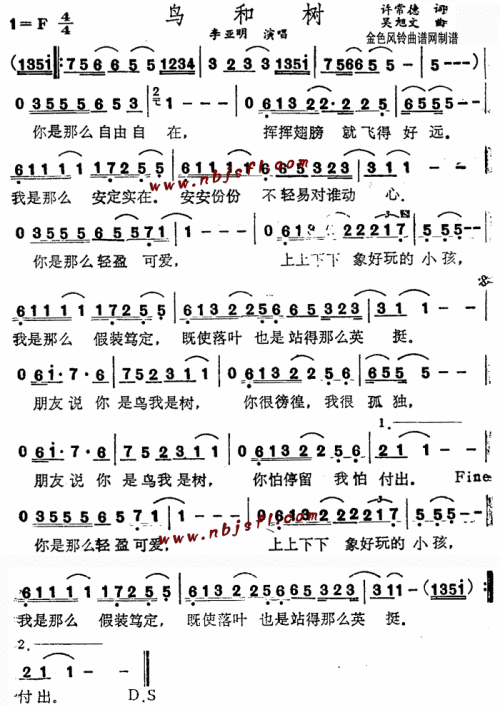 鸟和树
许常德 词
1=F 4/4
吴旭文 曲
李亚明 演唱
金色风铃曲谱网制谱
(1351̇|:7566 5 5 1234|3 3 3 1351̇|75665 5-|5---)|
0 355556 53|2 1---|0 61322·25|6555--|
你是那么自由自 在， 挥挥翅膀 就飞得 好 远。
61111 1725 5|61111 6 65323|31 1--|
我是那么 安定实在。 安安份份 不轻易对谁动 心。
www.nbjsfl.com
0 355556571|1---|0 613 222217|5 55--|
你是那么轻盈 可爱， 上上下下 象好玩的 小孩，
61111 1725 5|6132256 65323|31 1--|
我是那么 假装笃定， 既使落叶 也是站得那么英 挺。
0 6i·7·6|752311|0 61322256|655 5--|
朋友 说 你 是鸟我是树， 你很徬徨， 我很 孤 独，
1.
0 6i·7·6|752311|0 61322256|21 1--|
朋友 说 你 是鸟我是树， 你怕停留 我怕 付出。 Fine
0 355556571|1---|0 613 222217|5 55--|
你是那么轻盈可爱， 上上下下 象好玩的 小孩，
www.nbjsfl.com
61111 1725 5|6132256 65323|311-(1351̇):|
我是那么 假装笃定， 既使落叶 也是站得那么英 挺。
2.
21 1--‖
付出。 D.S